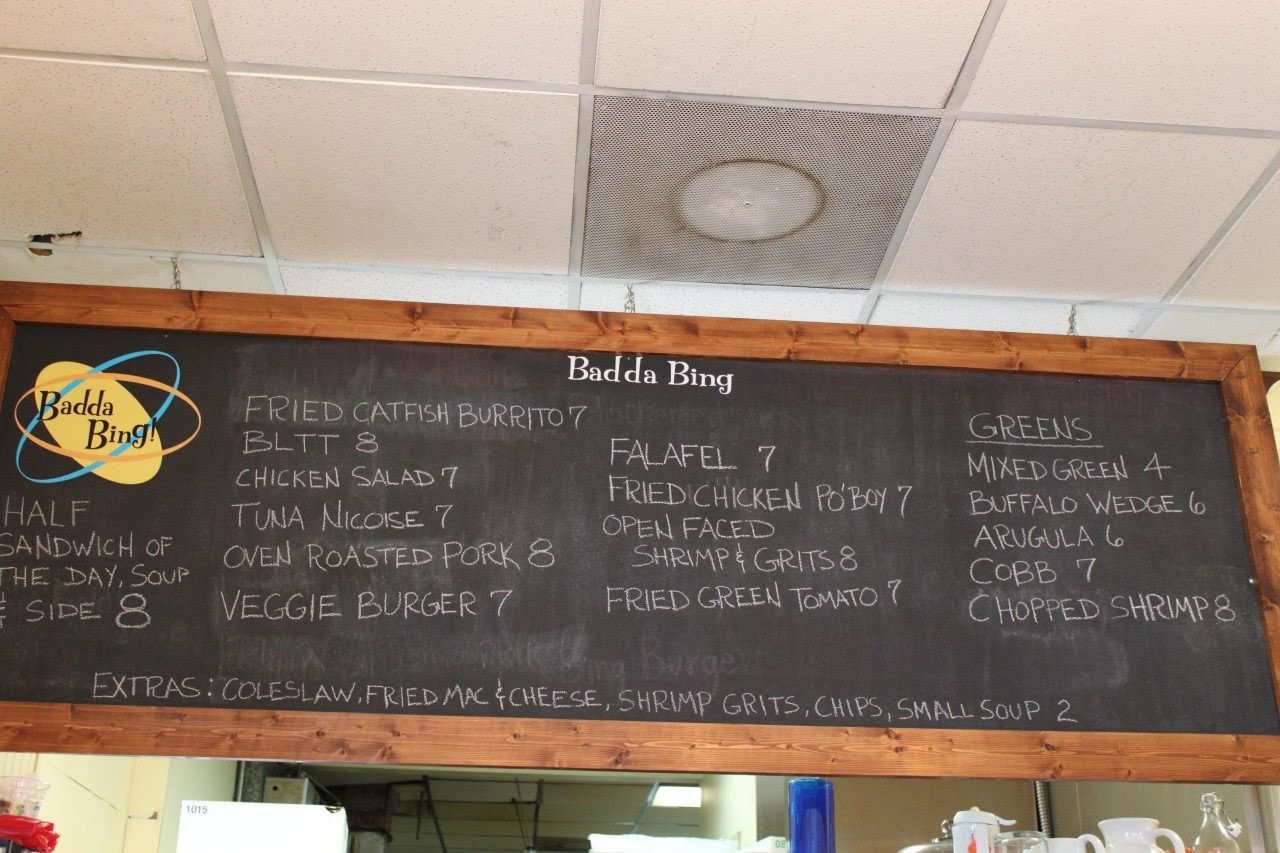 Badda Bing
Badda
Bing!
HALF
SANDWICH OF
THE DAY, SOUP
& SIDE 8
FRIED CATFISH BURRITO 7
BLTT 8
CHICKEN SALAD 7
TUNA NICOISE 7
OVEN ROASTED PORK 8
VEGGIE BURGER 7
FALAFEL 7
FRIED CHICKEN PO'BOY 7
OPEN FACED
SHRIMP & GRITS 8
FRIED GREEN TOMATO 7
GREENS
MIXED GREEN 4
BUFFALO WEDGE 6
ARUGULA 6
COBB 7
CHOPPED SHRIMP 8
Bing Burger
EXTRAS: COLESLAW, FRIED MAC & CHEESE, SHRIMP GRITS, CHIPS, SMALL SOUP 2
1015